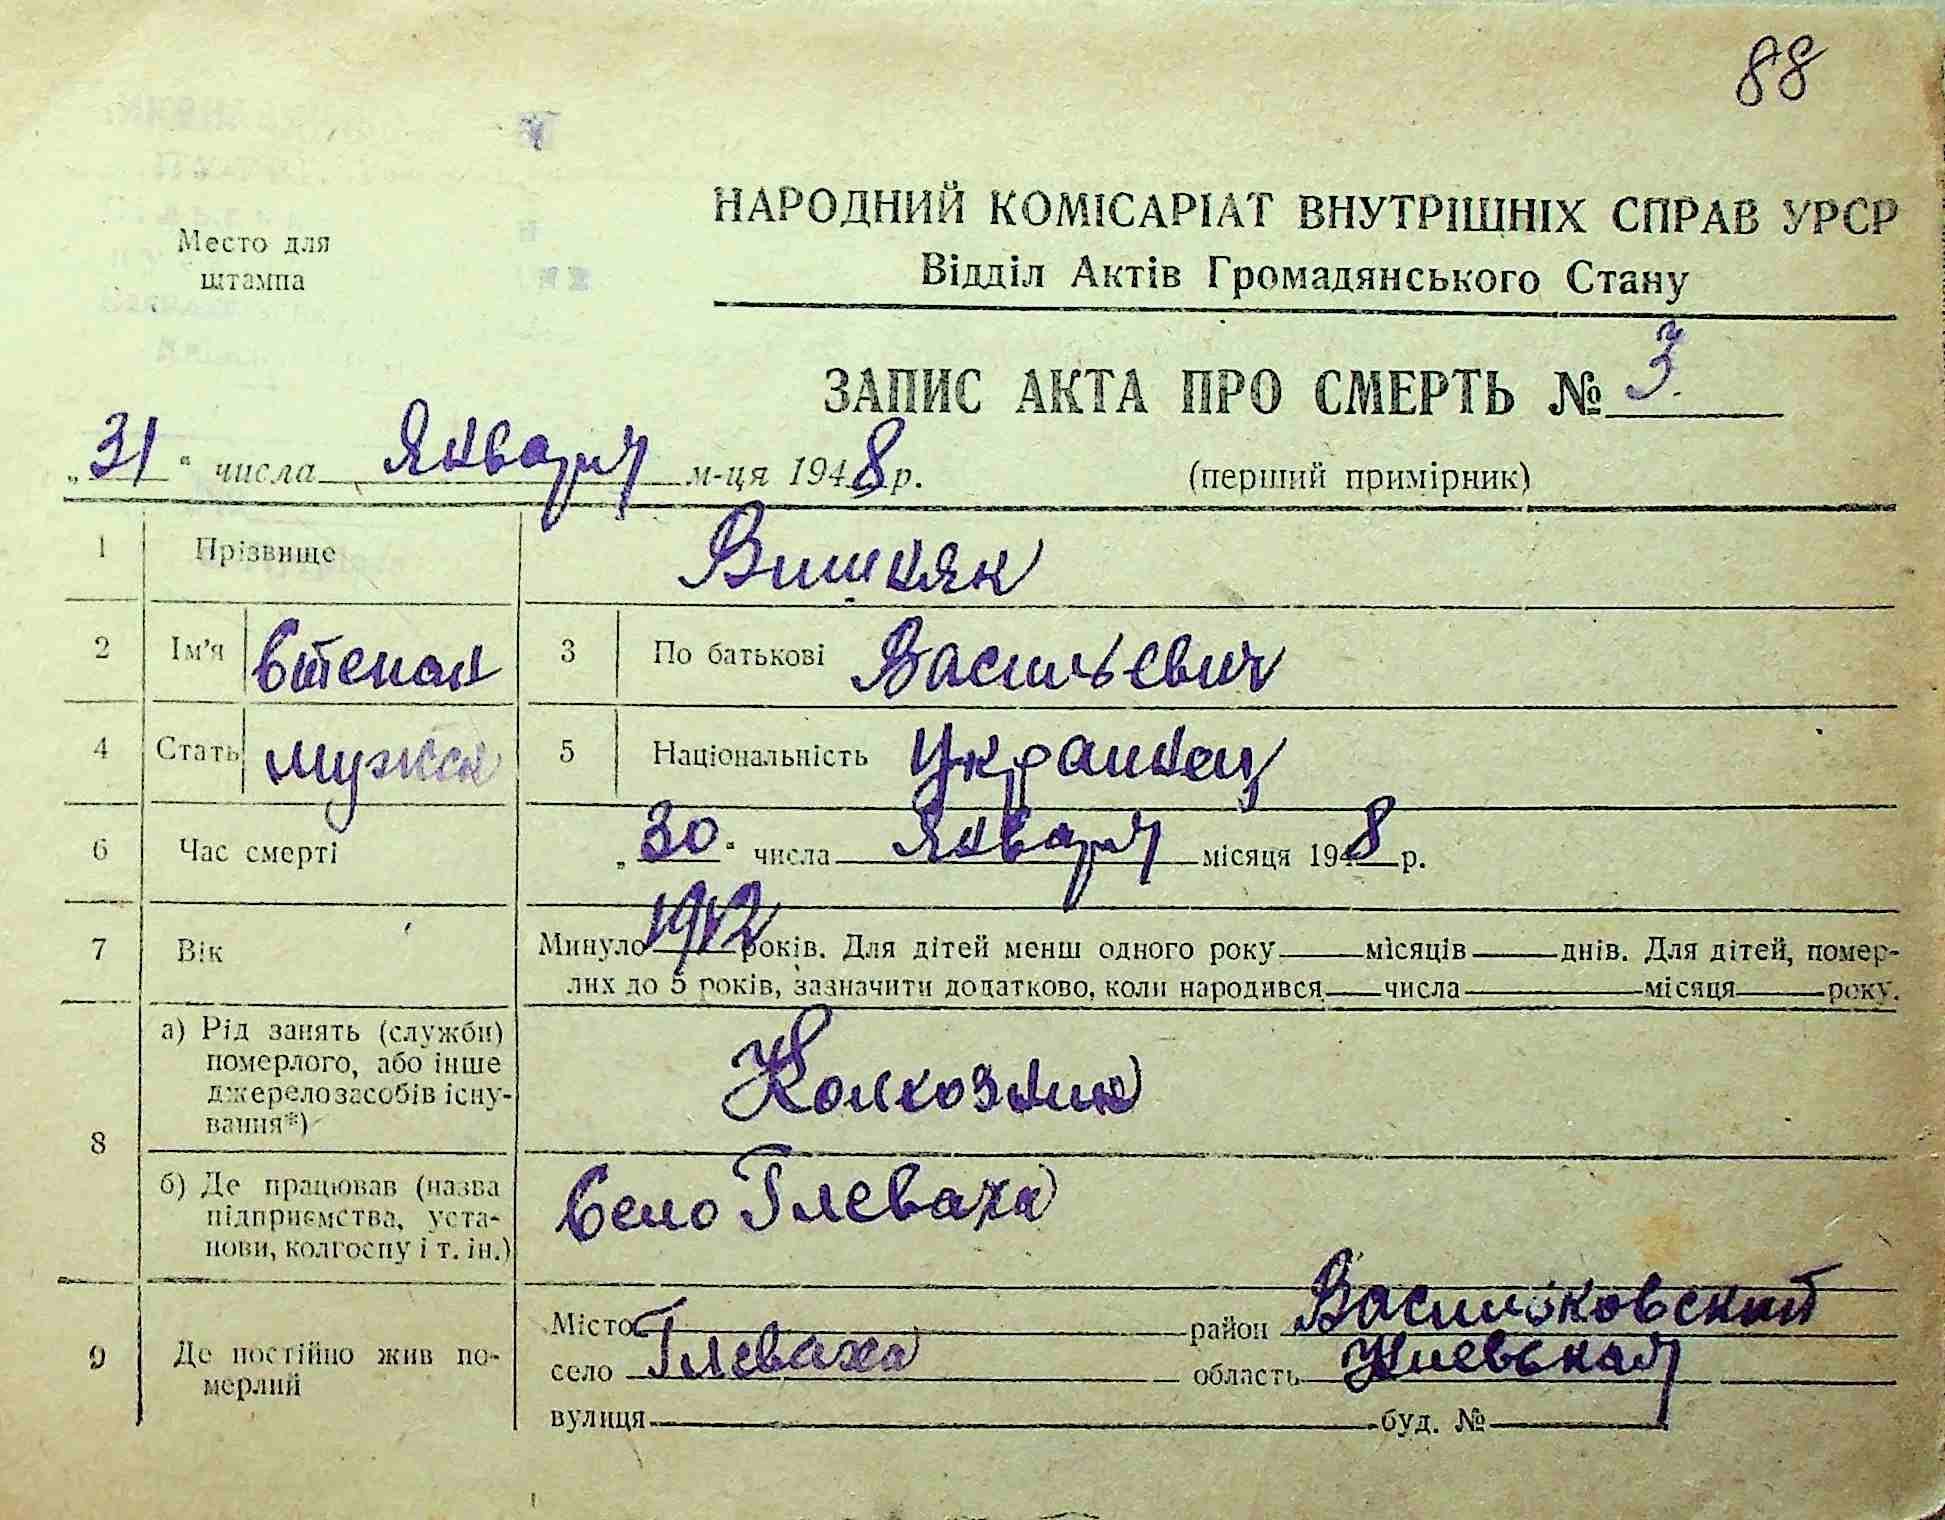 88
Место для
штампа
НАРОДНИЙ КОМІСАРІАТ ВНУТРІШНІХ СПРАВ УРСР
Відділ Актів Громадянського Стану
ЗАПИС АКТА ПРО СМЕРТЬ № 3
„31“ числа Января м-ця 1948 р.
(перший примірник)
1 Прізвище Вишняк
2 Ім'я Степан 3 По батькові Васильевич
4 Стать мужск 5 Національність Украинец
6 Час смерті „30“ числа Января місяця 1948 р.
7 Вік Минуло 1912 років. Для дітей менш одного року місяців днів. Для дітей, помер-
лих до 5 років, зазначити додатково, коли народився числа місяця року.
8 а) Рід занять (служби)
померлого, або інше
джерело засобів існу-
вання*)
Колхозник
б) Де працював (назва
підприємства, уста-
нови, колгоспу і т. ін.)
Село Глеваха
9 Де постійно жив по-
мерлий
Місто район Васильковский
село Глеваха область Киевская
вулиця буд. №